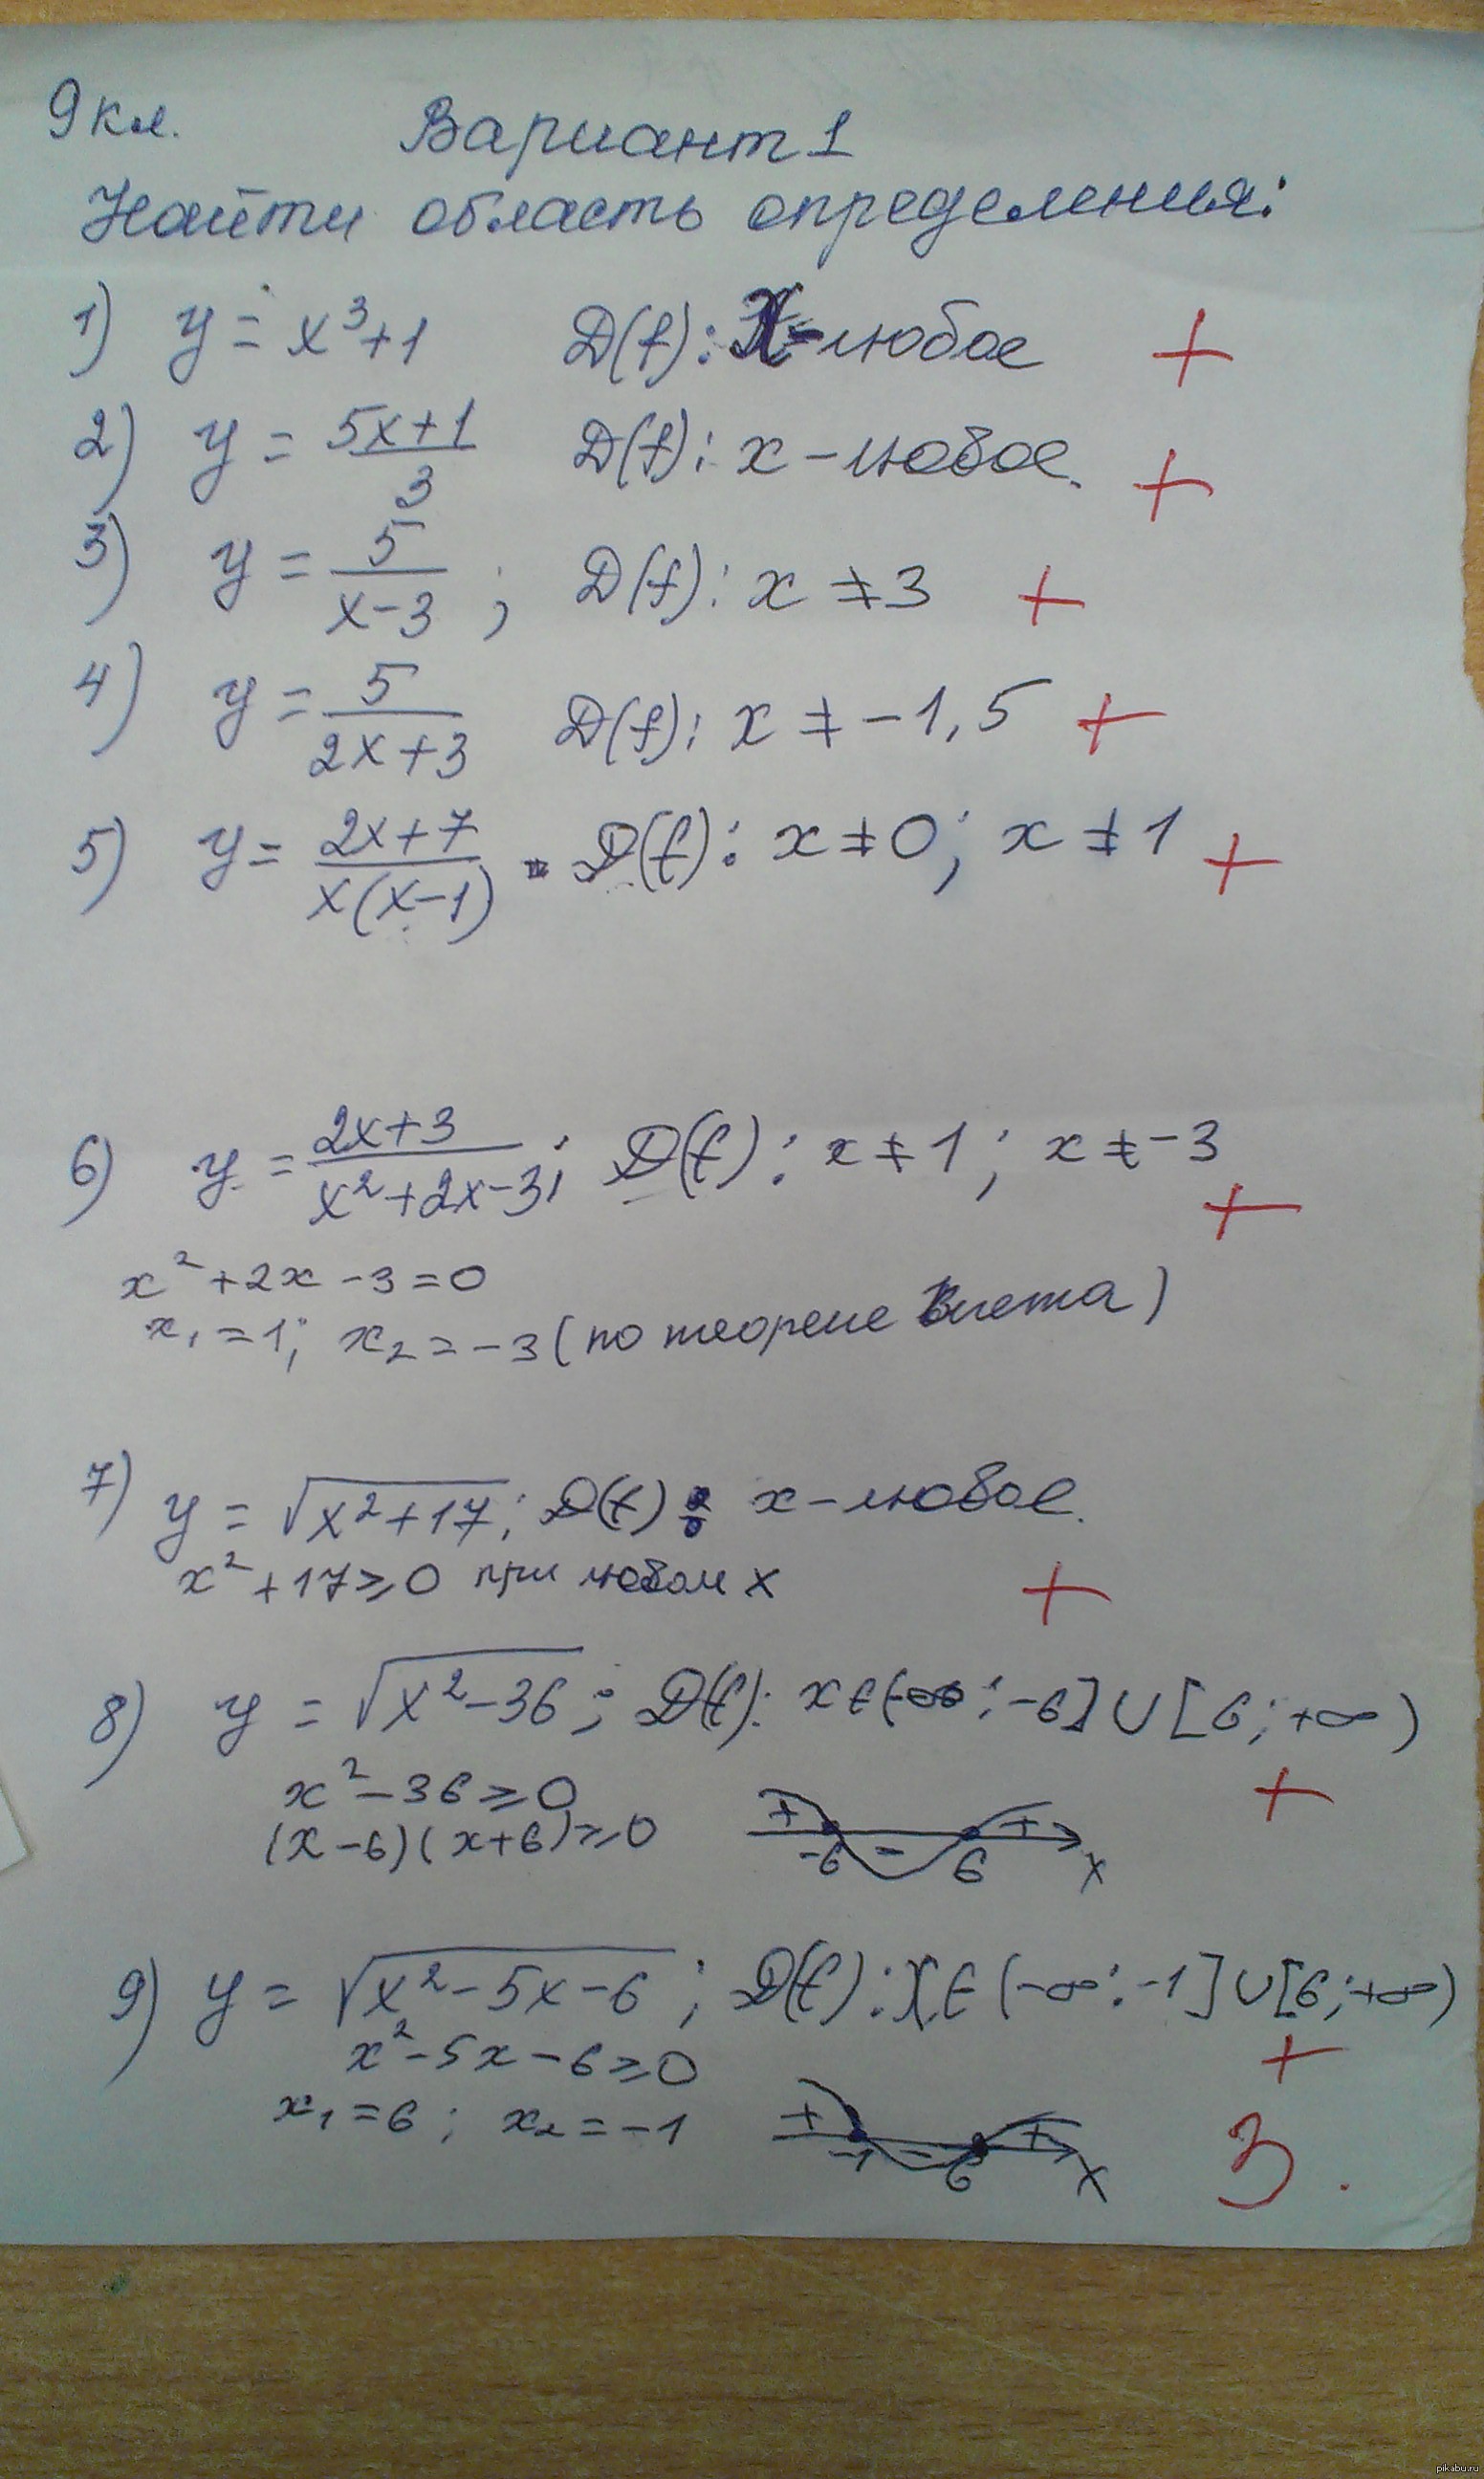 9 кл. Вариант 1
Найти область определения:
1) y = x³+1 D(f): x – любое +
2) y = (5x+1)/3 D(f): x – любое. +
3) y = 5/(x-3) ; D(f): x ≠ 3 +
4) y = 5/(2x+3) D(f): x ≠ -1,5 +
5) y = (2x+7)/(x(x-1)) D(f): x ≠ 0; x ≠ 1 +
6) y = (2x+3)/(x²+2x-3); D(f): x ≠ 1; x ≠ -3 +
x²+2x-3=0
x₁=1; x₂=-3 (по теореме Виета)
7) y = √(x²+17); D(f): x – любое.
x²+17≥0 при любом x +
8) y = √(x²-36); D(f): x∈(-∞;-6]∪[6;+∞)
x²-36≥0 +
(x-6)(x+6)≥0 + -6 - 6 + x
9) y = √(x²-5x-6); D(f): x∈(-∞;-1]∪[6;+∞)
x²-5x-6≥0 +
x₁=6; x₂=-1 + -1 - 6 + x 3.
pikabu.ru